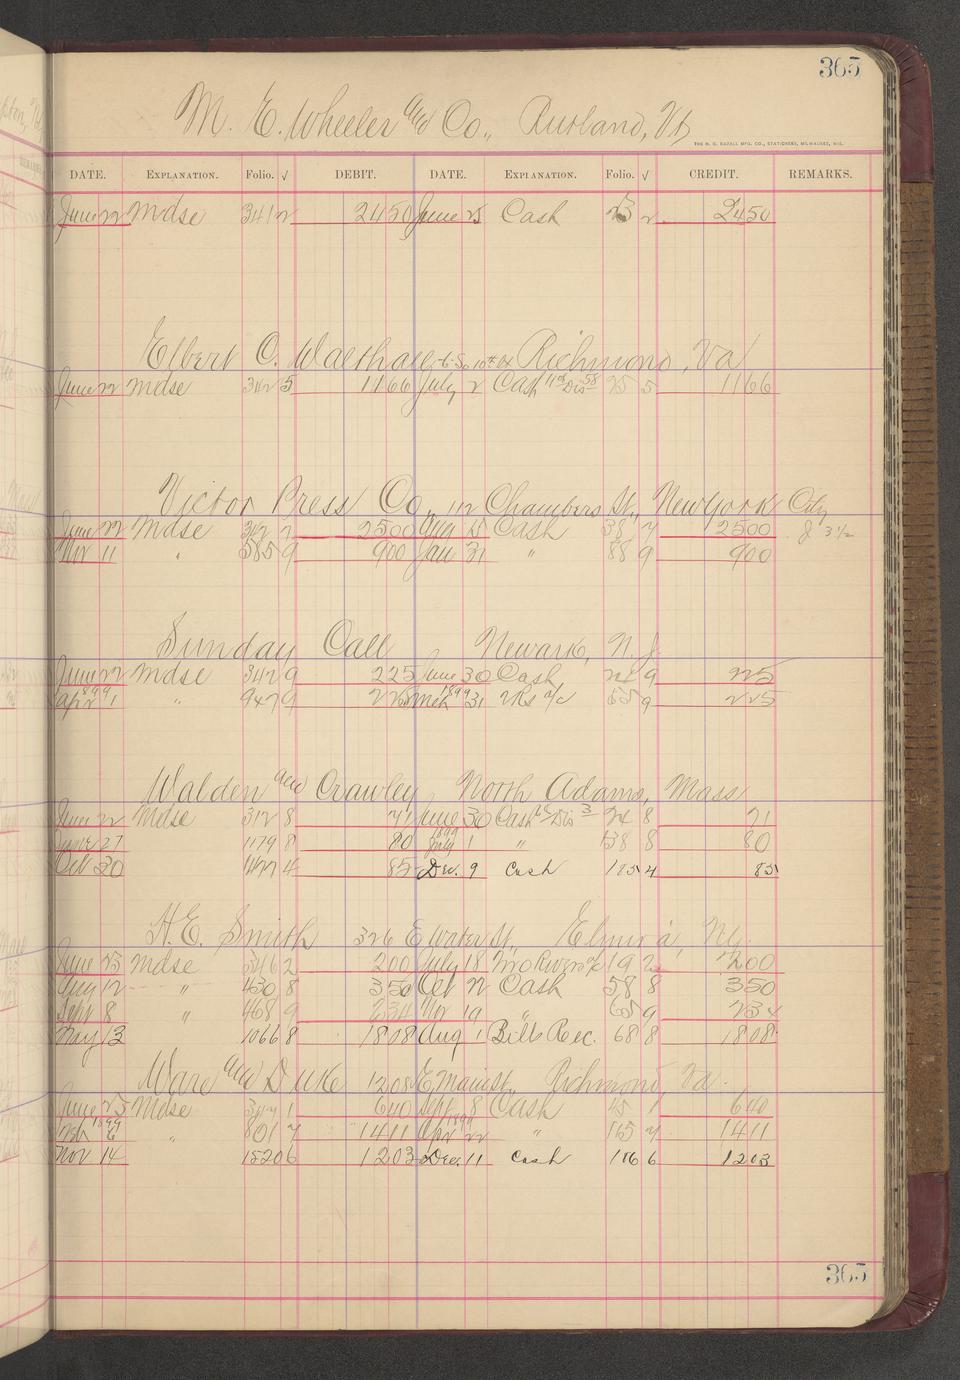 365
M. E. Wheeler and Co., Rutland, Vt
THE H. G. RAZALL MFG. CO., STATIONERS, MILWAUKEE, WIS.
DATE. EXPLANATION. Folio. √ DEBIT. DATE. EXPLANATION. Folio. √ CREDIT. REMARKS.
June 22 Mdse 341 2 2450 June 25 Cash 23 2 2450
Elbert C. Walthall 6 So 10th St Richmond, Va
June 22 Mdse 342 5 1166 July 2 Cash Dis 58 25 5 1166
Victor Press Co., 112 Chambers St., New York City
June 22 Mdse 342 7 2500 Aug 15 Cash 38 7 2500
Nov 11 " 585 9 900 Jan 31 " 88 9 900
Sunday Call Newark, N. J.
June 22 Mdse 342 9 225 June 30 Cash 24 9 225
Apr 1899 1 " 947 9 225 Mch 1899 31 a/c 9 225
Walden and Crawley North Adams, Mass
June 22 Mdse 312 8 71 June 30 Cash Dis 3 24 8 71
June 27 1179 8 80 1899 July 1 " 138 8 80
Oct 30 4 85 Dec. 9 Cash 185 4 85
H. E. Smith 326 E Water St., Elmira, Ny.
June 23 Mdse 346 2 200 July 18 19 2 200
Aug 12 " 430 8 350 Oct 12 Cash 58 8 350
Sept 8 " 468 9 234 Nov 19 " 65 9 234
May 13 1066 8 1808 Aug 1 Bills Rec. 68 8 1808
Ware and Duke 1208 E Main St., Richmond, Va.
June 23 Mdse 347 1 640 Sept 8 Cash 45 1 640
Feb 1899 6 " 801 7 1411 Apr 1899 22 " 115 7 1411
Nov 14 1520 6 1203 Dec. 11 Cash 186 6 1203
365